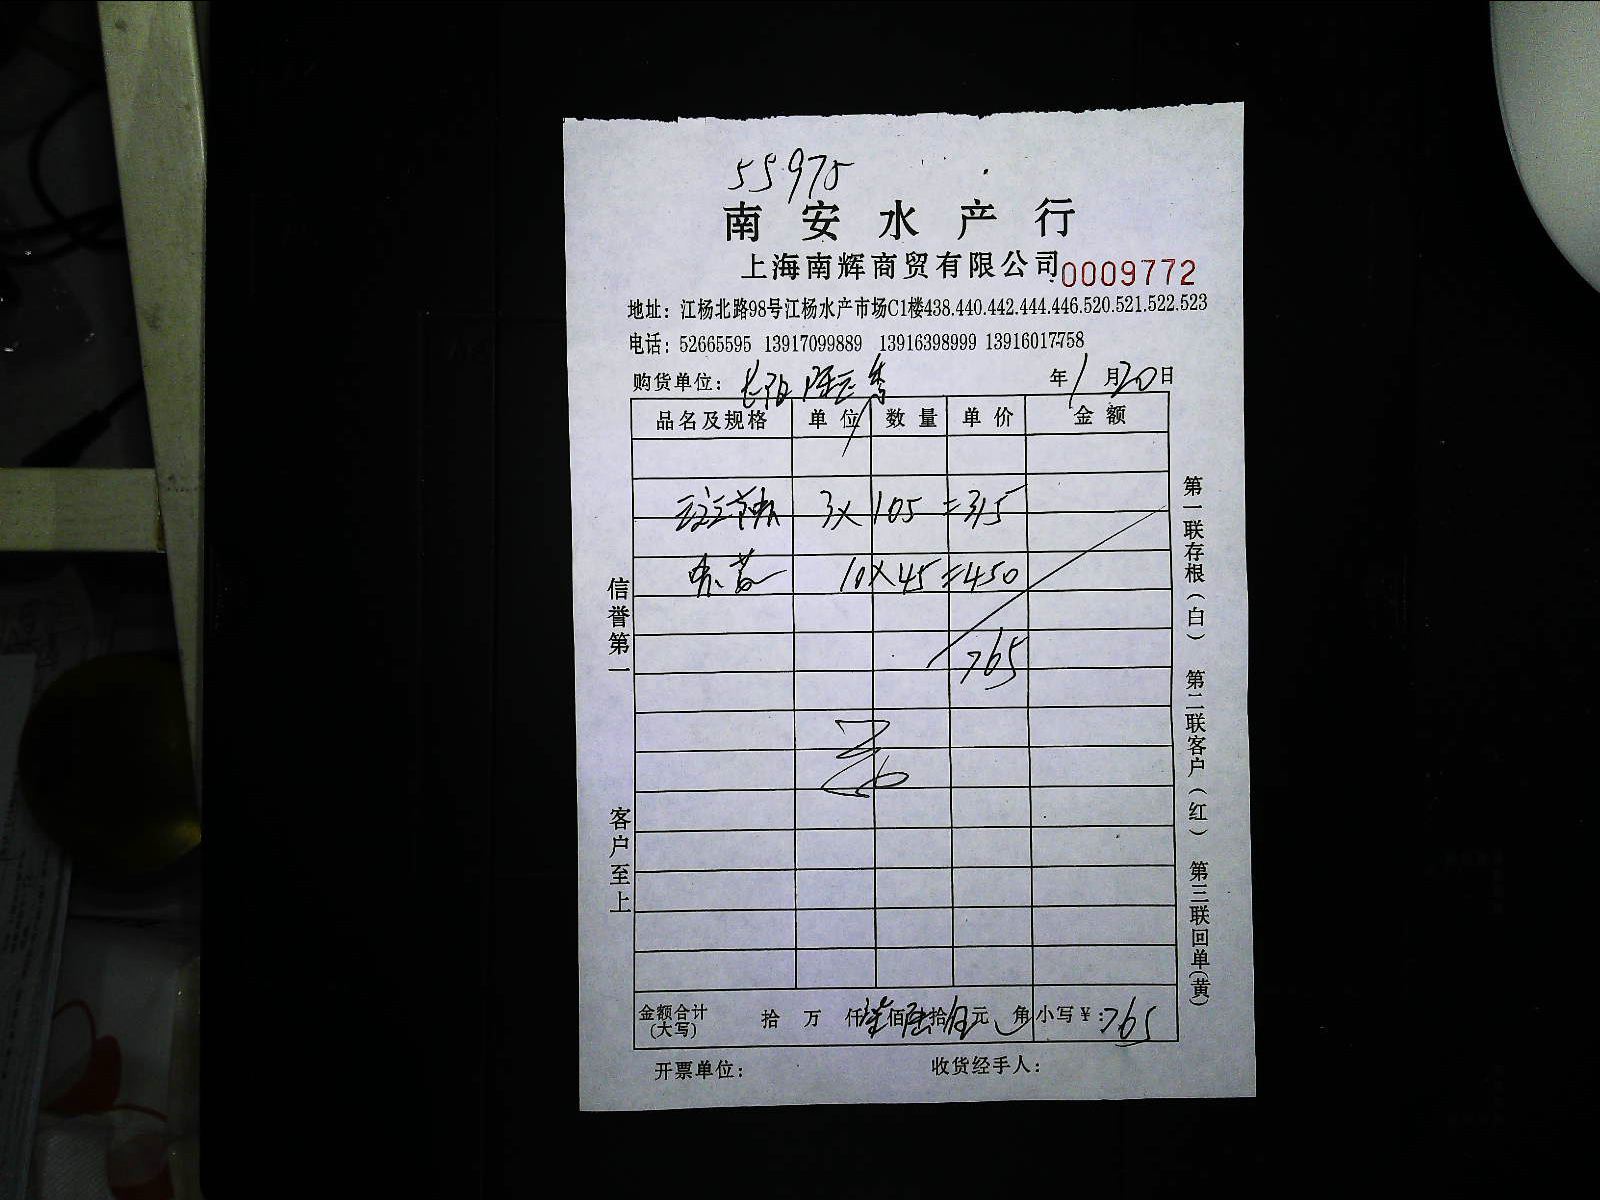 55975
南安水产行
上海南辉商贸有限公司 0009772
地址：江杨北路98号江杨水产市场C1楼438.440.442.444.446.520.521.522.523
电话：52665595 13917099889 13916398999 13916017758
购货单位： 年 1 月 20 日
品名及规格 单位 数量 单价 金额
3 x 105 = 315
10 x 45 = 450
765
信誉第一
客户至上
第一联存根（白） 第二联客户（红） 第三联回单（黄）
金额合计（大写） 拾 万 仟 柒 佰 陆 拾 伍 元 角 小写￥：765
开票单位： 收货经手人：